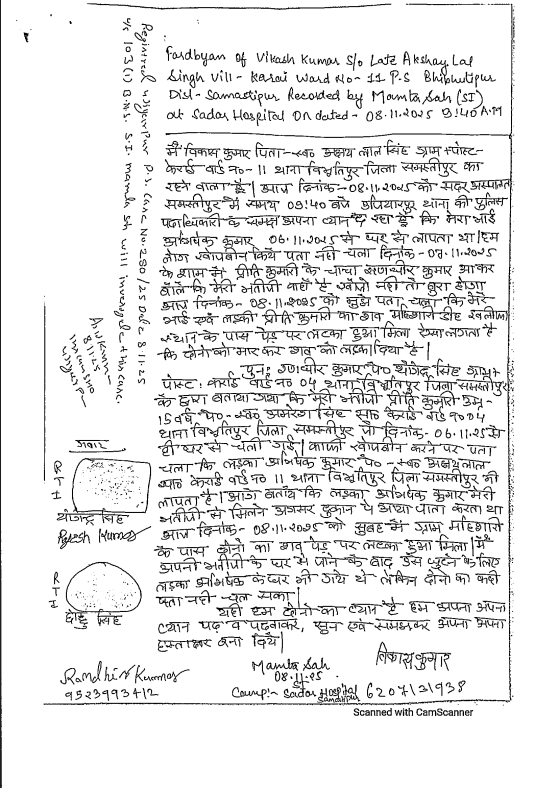 Fardbyan of Vikash Kumar S/o Late Akshay Lal
Singh Vill- Karai Ward No- 11 P.S Bibhutipur
Dist- Samastipur Recorded by Mamta Sah (SI)
at Sadar Hospital On dated - 08.11.2025 9:40 A.M
मैं विकास कुमार पिता - स्व० अक्षय लाल सिंह ग्राम + पोस्ट-
करई वार्ड न० - 11 थाना विभूतिपुर जिला समस्तीपुर का
रहने वाला हूँ। आज दिनांक - 08.11.2025 को सदर अस्पताल
समस्तीपुर में समय 09:40 बजे उजियारपुर थाना की पुलिस
पदाधिकारी के समक्ष अपना ब्यान दे रहा हूँ कि मेरा भाई
अभिषेक कुमार 06.11.2025 से घर से लापता था। हम
लोग खोजबीन किये पता नहीं चला दिनांक - 07.11.2025
के शाम में प्रीति कुमारी के चाचा रणधीर कुमार आकर
बोले कि मेरी भतीजी कहाँ है खोजो नहीं तो बुरा होगा
आज दिनांक - 08.11.2025 को मुझे पता चला कि मेरे
भाई एवं लड़की प्रीति कुमारी का शव महिशारी डीह
स्थान के पास पेड़ पर लटका हुआ मिला ऐसा लगता है
कि दोनों को मार कर शव को लटका दिया है।
पुनः रणधीर कुमार पि० योगेन्द्र सिंह ग्राम +
पोस्ट: करई वार्ड न० 04 थाना विभूतिपुर जिला समस्तीपुर
के द्वारा बताया गया कि मेरी भतीजी प्रीति कुमारी उम्र-
15 वर्ष पि० - स्व० अमरेश सिंह सा० करई वार्ड न० 04
थाना विभूतिपुर जिला समस्तीपुर जो दिनांक - 06.11.25 से
ही घर से चली गई। काफी खोजबीन करने पर पता
चला कि लड़का अभिषेक कुमार पि० - स्व० अक्षय लाल
सा० करई वार्ड न० 11 थाना विभूतिपुर जिला समस्तीपुर भी
लापता है। आगे बताये कि लड़का अभिषेक कुमार मेरी
भतीजी से मिलने अक्सर दुकान पे आया जाता करता था
आज दिनांक - 08.11.2025 को सुबह में ग्राम महिशारी
के पास दोनों का शव पेड़ पर लटका हुआ मिला। मैं
अपनी भतीजी के घर से जाने के बाद उसे ढूंढने के लिए
लड़का अभिषेक के घर भी गये थे लेकिन दोनों का कहीं
पता नहीं चल सका।
यही हम दोनों का ब्यान है हम अपना अपना
ब्यान पढ़ व पढ़वाकर, सुन एवं समझकर अपना अपना
हस्ताक्षर बना दिये।
विकास कुमार
6207131938
Mamta Sah
08.11.25
Camp:- Sadar Hospital
Samastipur
Randhir Kumar
9523993412
Registered Ujiyarpur P.S. Case No. 280/25 Dat. 8.11.25
u/s 103(1) B.N.S. S.I. Mamta Sh will investigate this case.
8.11.25
गवाह
RTI
योगेन्द्र सिंह
Rajesh Kumar
RTI
सिंह
Scanned with CamScanner